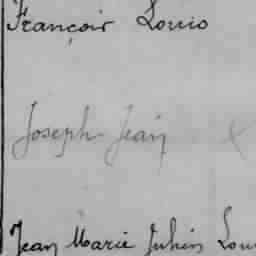 François Louis
Joseph Jean X
Jean Marie Julien Lou